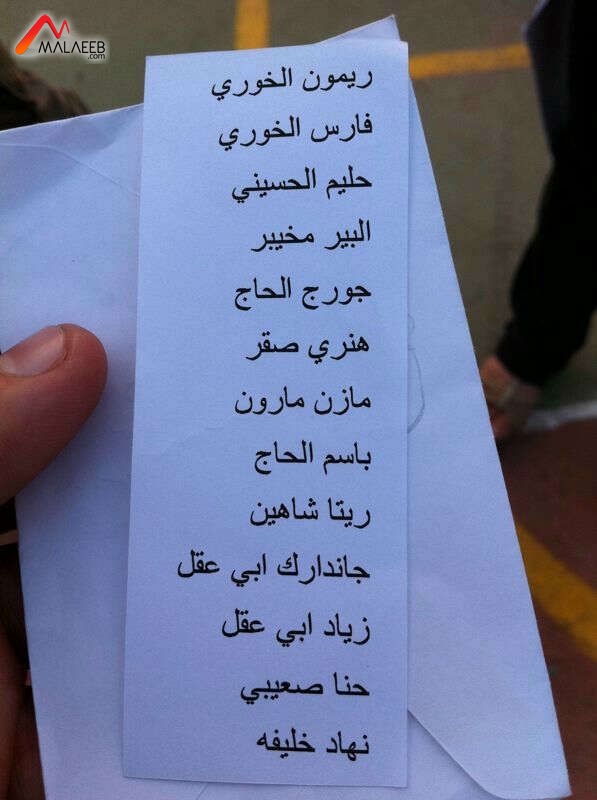 MALAEEB
.com
ريمون الخوري
فارس الخوري
حليم الحسيني
البير مخيبر
جورج الحاج
هنري صقر
مازن مارون
باسم الحاج
ريتا شاهين
جاندارك ابي عقل
زياد ابي عقل
حنا صعيبي
نهاد خليفه